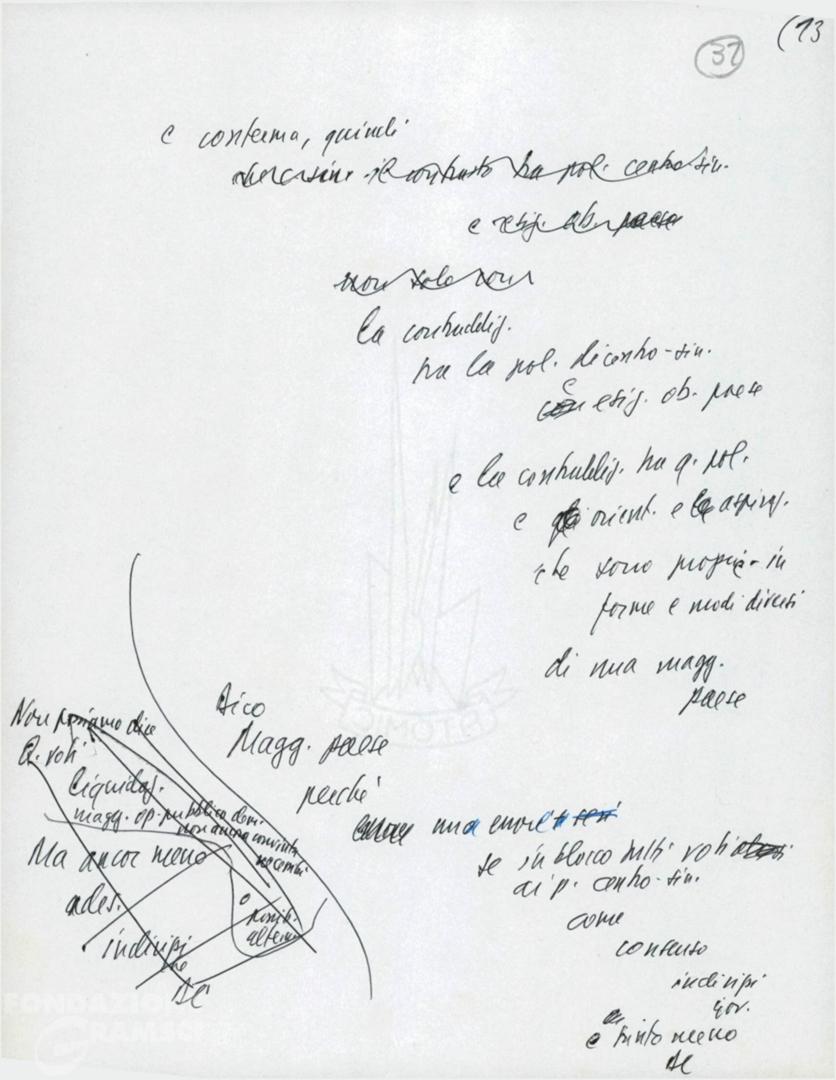 (13
37
e conferma, quindi
il contrasto tra pol. centro sin.
e esig. ob. paese
non solo
la contraddiz.
tra la pol. di centro-sin.
e esig. ob. paese
e la contraddiz. tra q. pol.
e orient. e le aspiraz.
che sono proprie in
forme e modi diversi
di una magg.
paese
Dico
Magg. paese
perché
una
se in blocco tutti voti
ai p. centro-sin.
come
consenso
indirizzi
gov.
e tanto meno
DC
Non possiamo dire
Q. voti
liquidaz.
magg. op. pubblica
non ancora convinta
Ma ancor meno
ades.
indirizzi
DC
possib.
altern.
FONDAZIONE
GRAMSCI